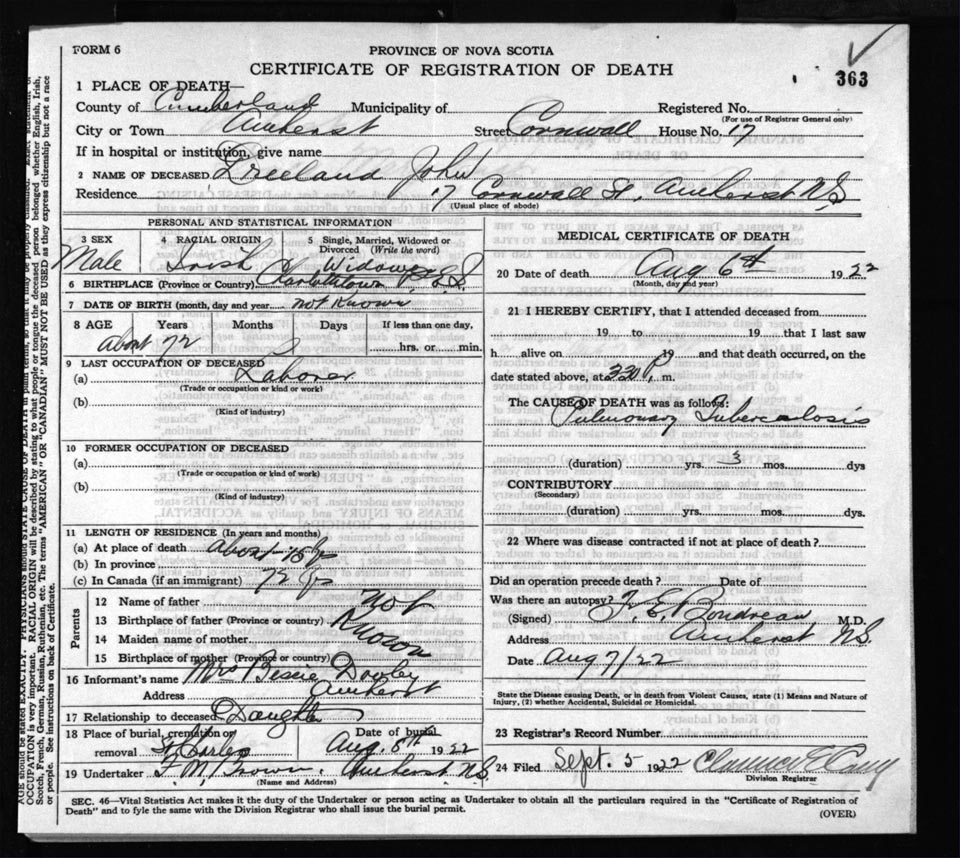 FORM 6
PROVINCE OF NOVA SCOTIA
CERTIFICATE OF REGISTRATION OF DEATH
363
1 PLACE OF DEATH—
County of Cumberland Municipality of Registered No.
(For use of Registrar General only)
City or Town Amherst Street Cornwall House No. 17
If in hospital or institution, give name
2 NAME OF DECEASED Freeland John
Residence 17 Cornwall St. Amherst N.S
(Usual place of abode)
PERSONAL AND STATISTICAL INFORMATION
3 SEX 4 RACIAL ORIGIN 5 Single, Married, Widowed or Divorced (Write the word)
Male Irish Widower
6 BIRTHPLACE (Province or Country) Charlottetown P.E.I.
7 DATE OF BIRTH (month, day and year) not Known
8 AGE Years Months Days If less than one day,
About 72 hrs. or min.
9 LAST OCCUPATION OF DECEASED
(a) Laborer
(Trade or occupation or kind or work)
(b)
(Kind of industry)
10 FORMER OCCUPATION OF DECEASED
(a)
(Trade or occupation or kind of work)
(b)
(Kind of Industry)
11 LENGTH OF RESIDENCE (In years and months)
(a) At place of death About 15 yrs
(b) In province
(c) In Canada (if an immigrant) 72 yrs
Parents
12 Name of father Not
13 Birthplace of father (Province or country) Known
14 Maiden name of mother
15 Birthplace of mother (Province or country)
16 Informant's name Mrs Bessie Dowley
Address Amherst
17 Relationship to deceased Daughter
18 Place of burial, cremation or removal Date of burial
St Charles Aug. 8th 1922
19 Undertaker F. M. Brown. Amherst N.S.
(Name and Address)
MEDICAL CERTIFICATE OF DEATH
20 Date of death Aug 6th 1922
(Month, day and year)
21 I HEREBY CERTIFY, that I attended deceased from
19 to 19 that I last saw
h alive on 19 and that death occurred, on the
date stated above, at 3.30 P. m.
The CAUSE OF DEATH was as follows:
Pulmonary Tuberculosis
(duration) yrs. 3 mos. dys
CONTRIBUTORY
(Secondary)
(duration) yrs. mos. dys.
22 Where was disease contracted if not at place of death?
Did an operation precede death? Date of
Was there an autopsy?
(Signed) J. E. Boudreau M.D.
Address Amherst N.S.
Date Aug 7/22
State the Disease causing Death, or in death from Violent Causes, state (1) Means and Nature of
Injury, (2) whether Accidental, Suicidal or Homicidal.
23 Registrar's Record Number
24 Filed Sept. 5 1922 Clarence E Casey
Division Registrar
SEC. 46—Vital Statistics Act makes it the duty of the Undertaker or person acting as Undertaker to obtain all the particulars required in the "Certificate of Registration of
Death" and to fyle the same with the Division Registrar who shall issue the burial permit.
(OVER)
OCCUPATION is very important. RACIAL ORIGIN will be described by stating to what people or tongue the deceased person belonged whether English, Irish,
Scotch, French, German, Russian, Ruthenian, etc. The terms "AMERICAN" OR "CANADIAN" MUST NOT BE USED as they express citizenship but not a race
or people. See instructions on back of Certificate.